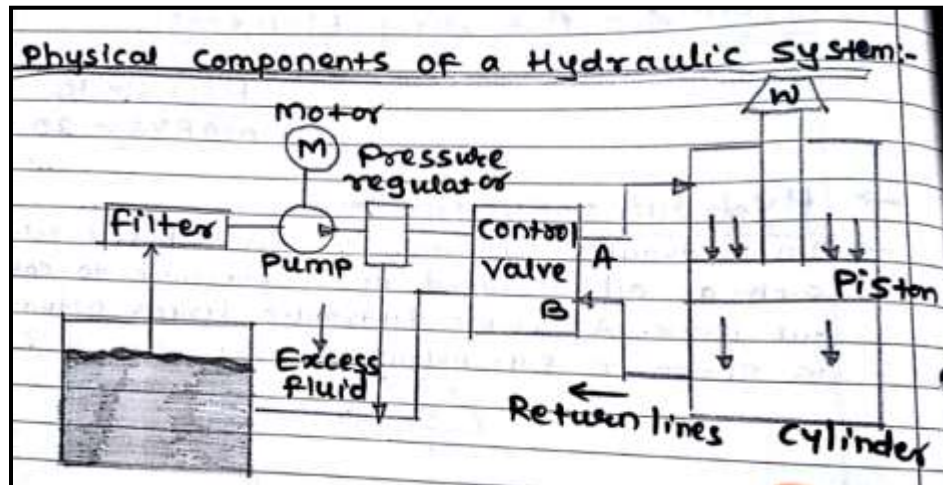 Physical Components of a Hydraulic System:-
W
Motor
M
Pressure
regulator
Filter
Pump
Control
Valve
A
B
Piston
Excess
fluid
Return lines
Cylinder